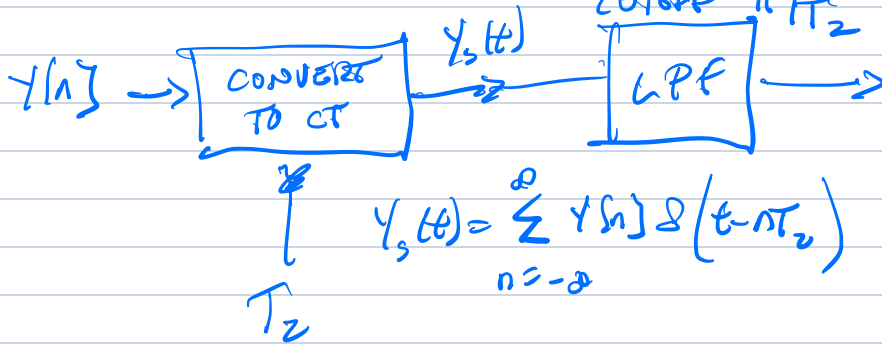 CUTOFF π/T₂
y[n] → CONVERT TO CT
yₛ(t)
LPF
T₂
yₛ(t) = ∑ y[n] δ(t-nT₂)
∞
n=-∞